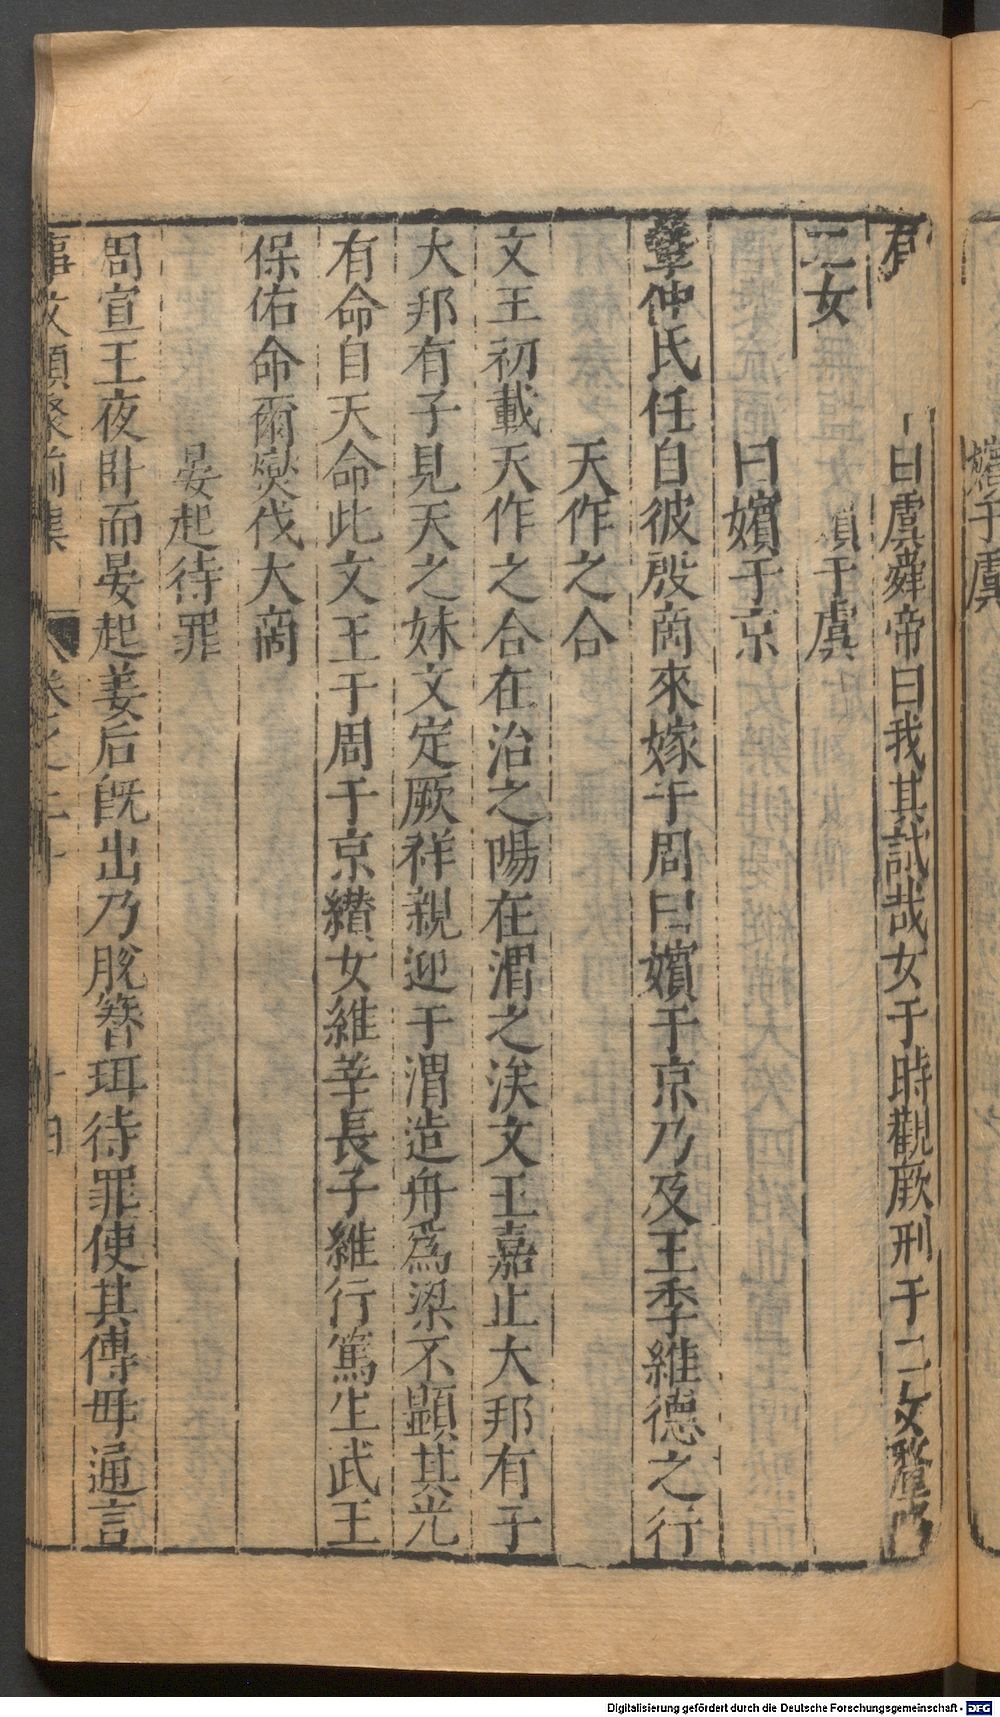 曰虞舜帝曰我其試哉女于時觀厥刑于二女釐降
二女　嬪于虞
曰嬪于京
摯仲氏任自彼殷商來嫁于周曰嬪于京乃及王季維德之行
天作之合
文王初載天作之合在治之陽在渭之涘文王嘉止大邦有子
大邦有子見天之妹文定厥祥親迎于渭造舟爲梁不顯其光
有命自天命此文王于周于京纘女維莘長子維行篤生武王
保佑命爾燮伐大商
晏起待罪
周宣王夜卧而晏起姜后旣出乃脫簪珥待罪使其傅母通言
事文類聚前集　卷之二十　十四
嬪于虞
Digitalisierung gefördert durch die Deutsche Forschungsgemeinschaft - DFG